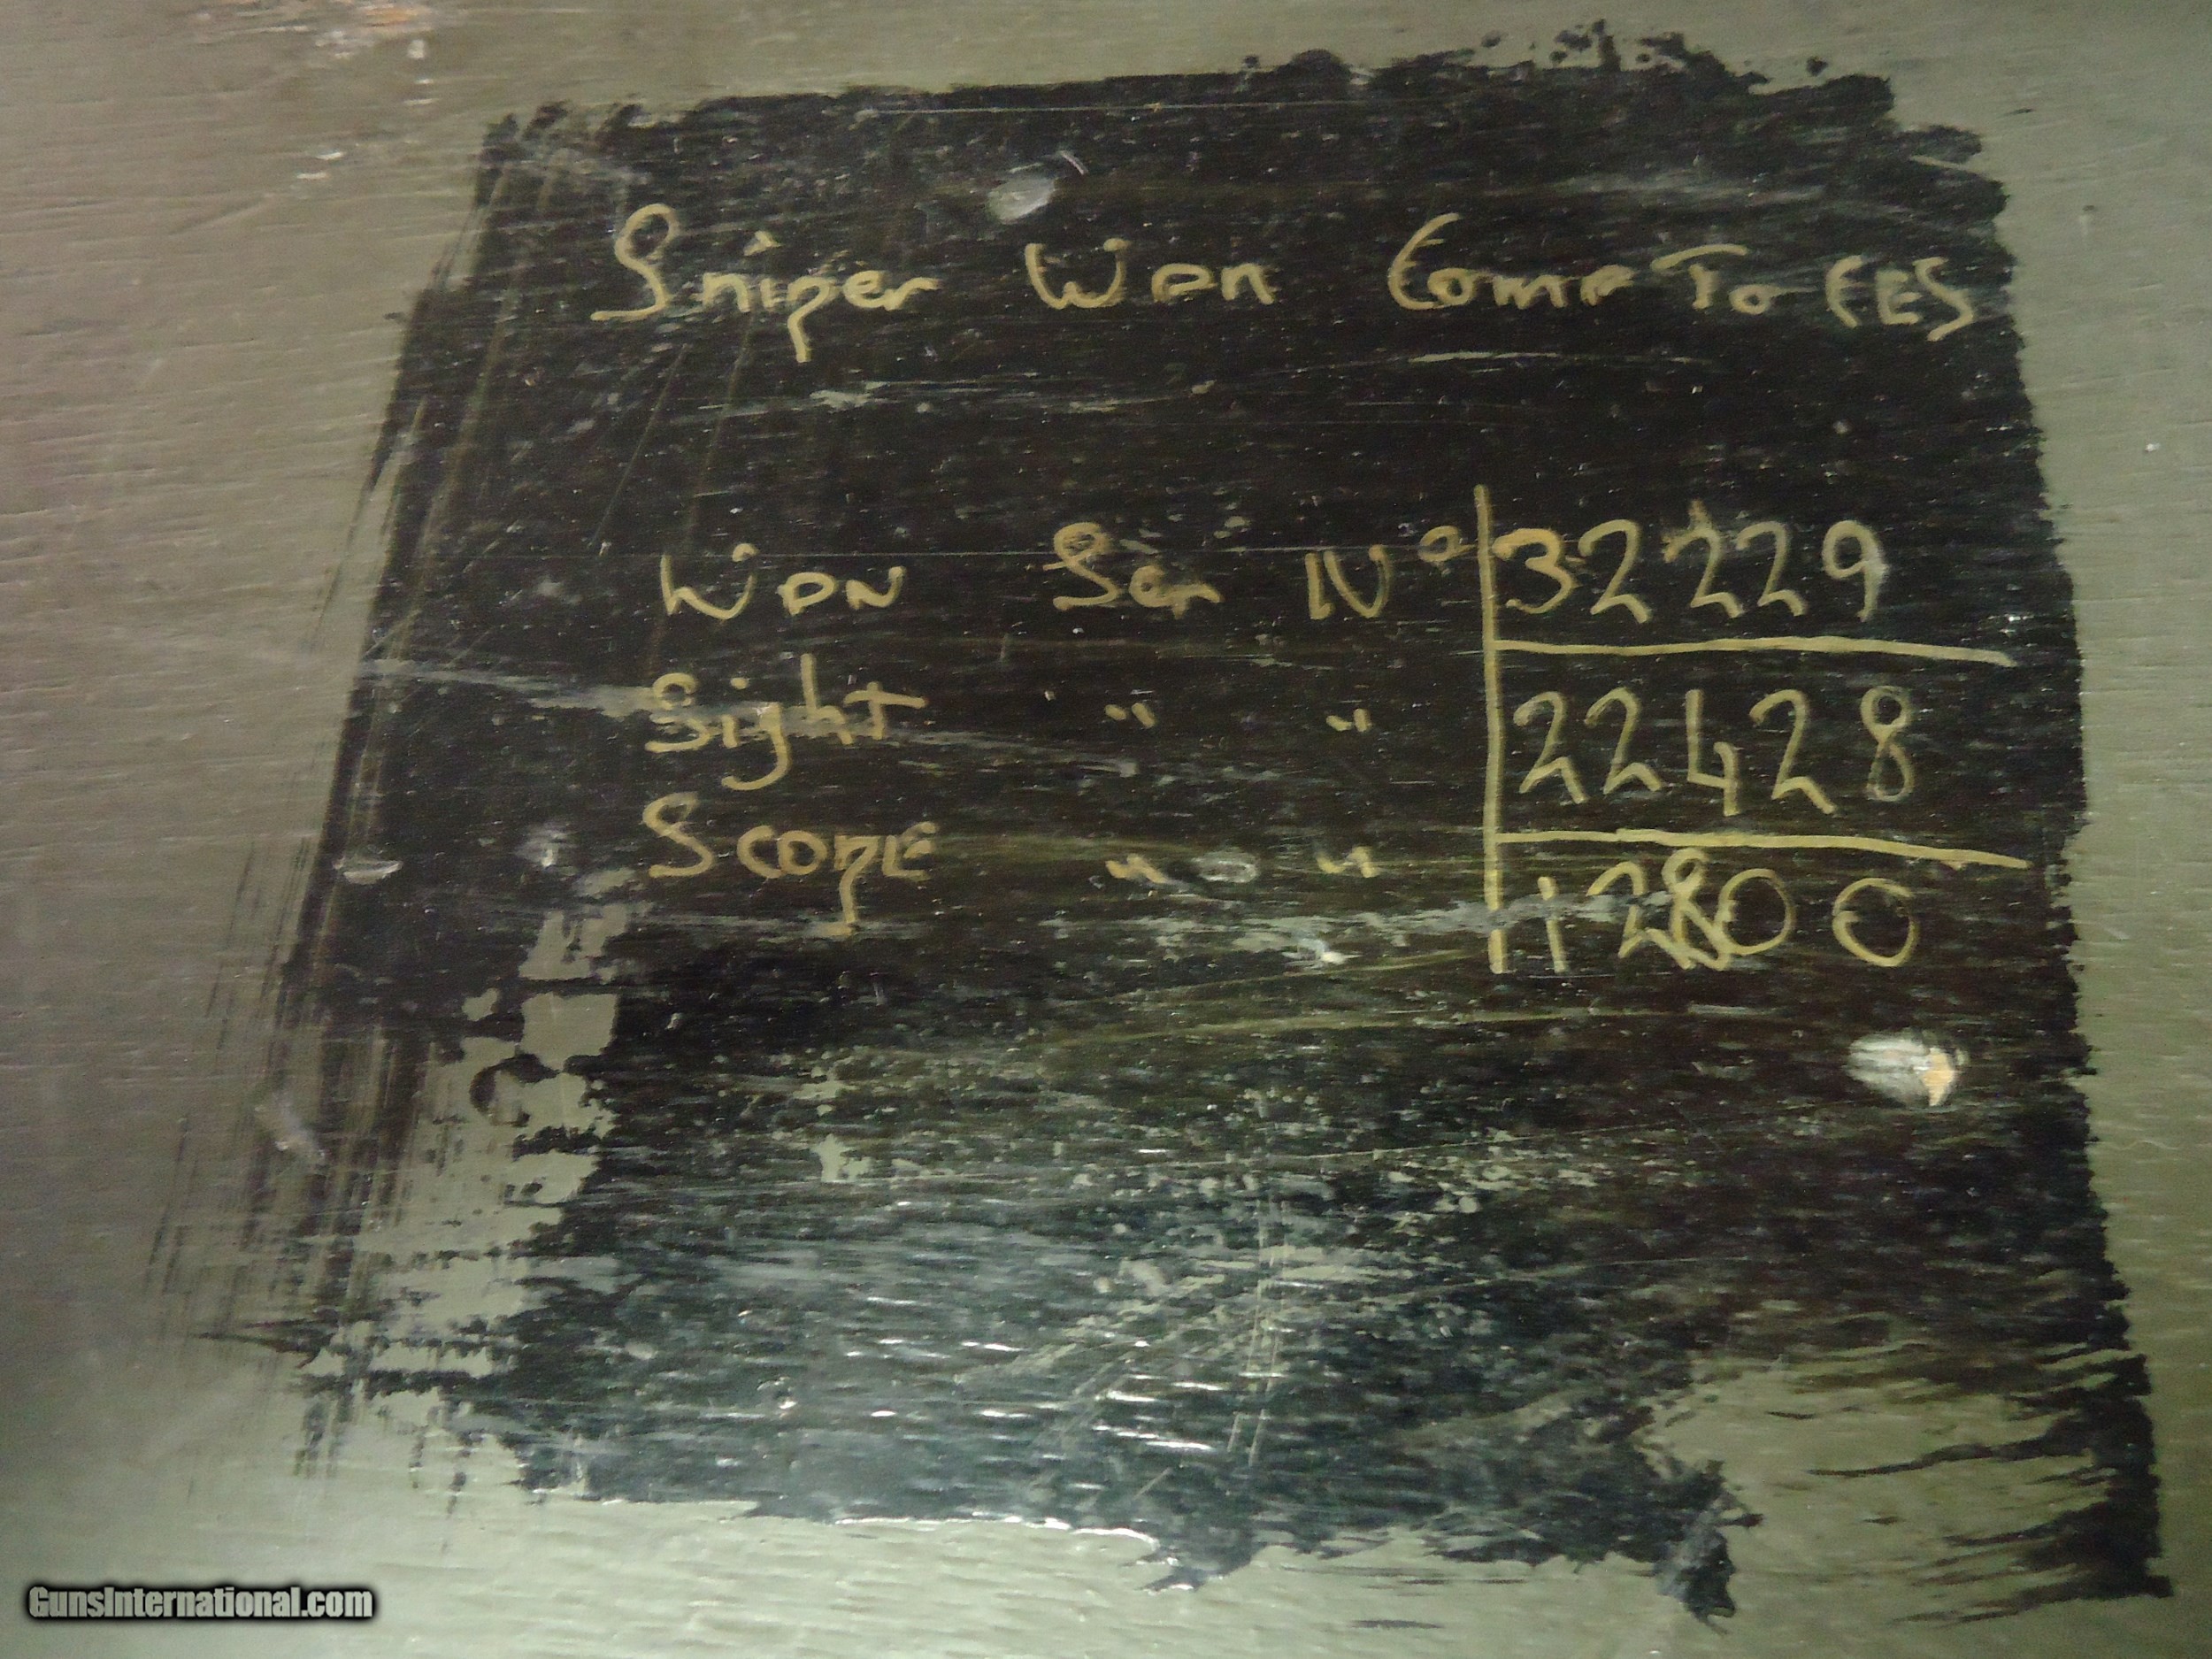 Sniper WPN Comp To EES
WPN Ser Nº 32229
Sight " " 22428
SCOPE " " 12800
GunsInternational.com